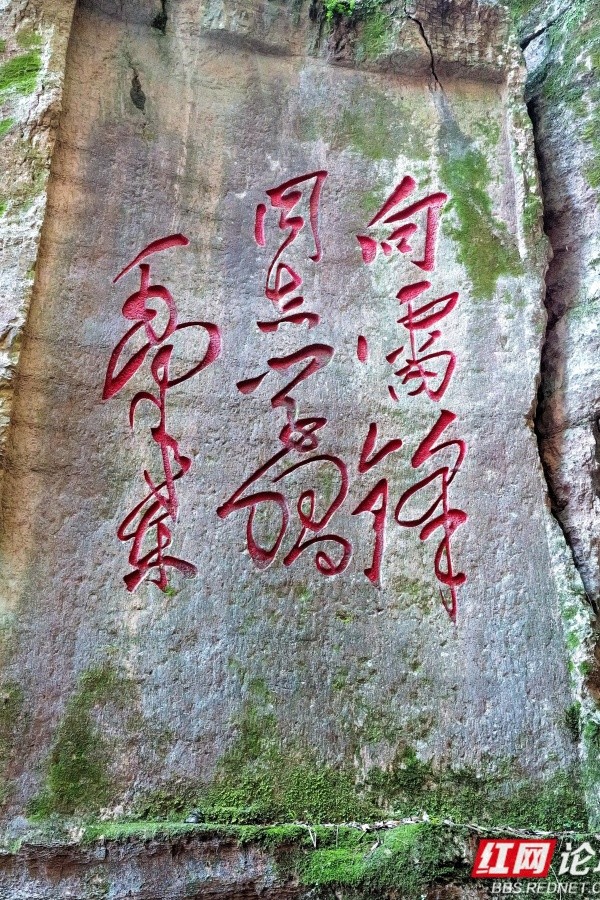 向雷锋
同志学习
毛泽东
红网 论坛
BBS.REDNET.C